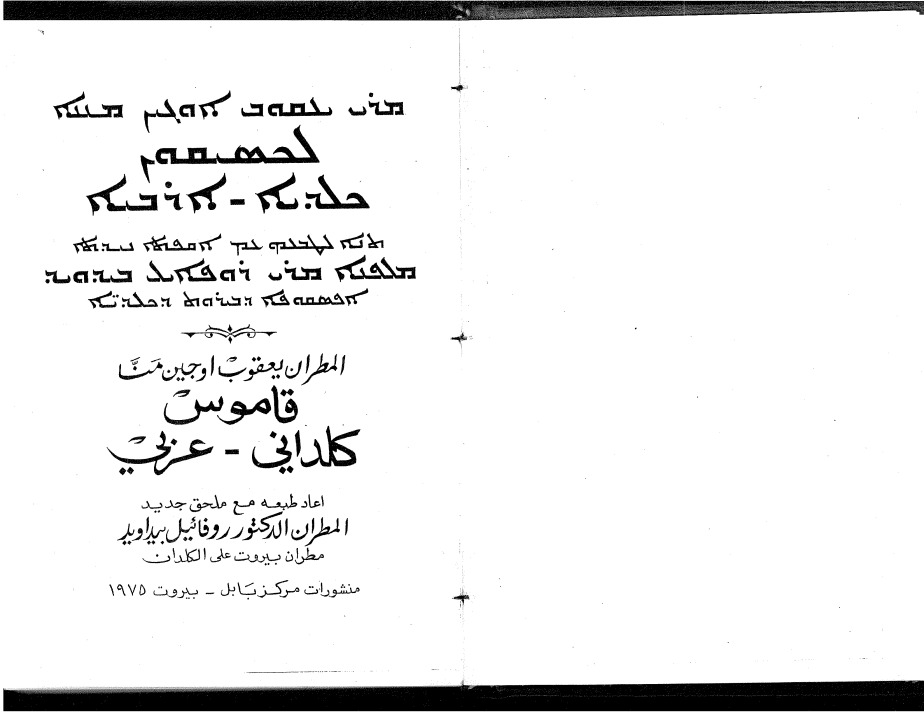 ܡܪܝ ܝܥܩܘܒ ܐܘܓܝܢ ܡܢܐ
ܠܟܣܝܩܘܢ
ܟܠܕܝܐ - ܐܪܒܝܐ
ܡܠܦܢܐ ܡܪܝ ܪܘܦܐܝܠ ܒܝܕܘܝܕ
ܐܦܣܩܘܦܐ ܕܒܪܘܬ ܕܟܠܕܝܐ
المطران يعقوب اوجين مَنَّا
قاموس
كلداني - عربي
اعاد طبعه مع ملحق جديد
المطران الدكتور روفائيل بيداويد
مطران بيروت على الكلدان
منشورات مركز بَابل - بيروت ١٩٧٥